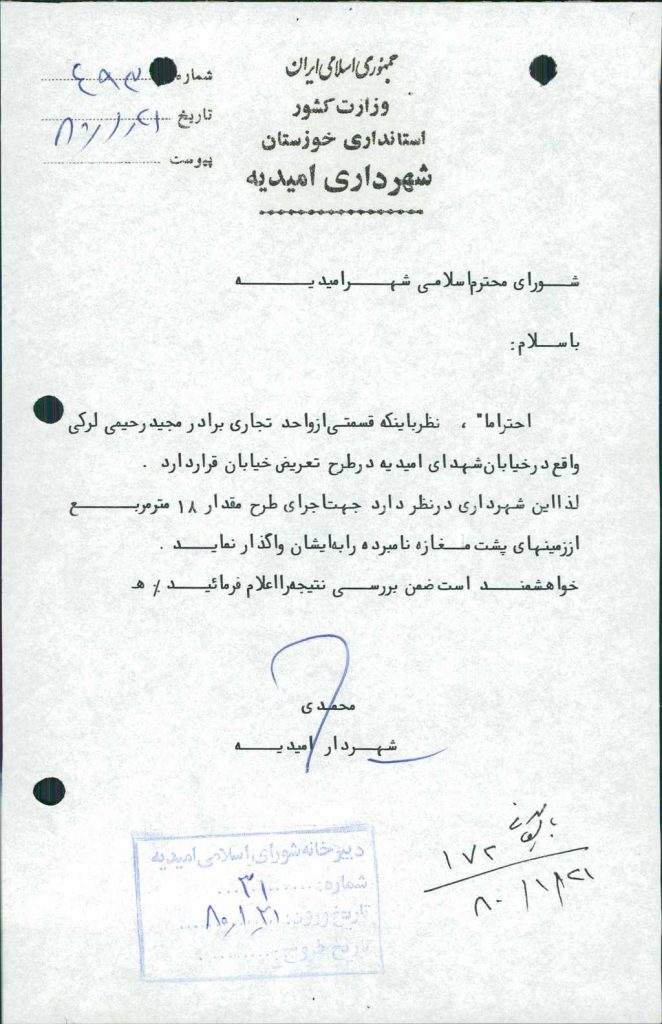 جمهوری اسلامی ایران
وزارت کشور
استانداری خوزستان
شهرداری امیدیه
شماره ۴۹۳
تاریخ ۸۰/۱/۲۱
پیوست
شورای محترم اسلامی شهر امیدیه
با سلام:
احتراما" ، نظر باینکه قسمتی از واحد تجاری برادر مجید رحیمی لرکی
واقع در خیابان شهدای امیدیه در طرح تعریض خیابان قرار دارد .
لذا این شهرداری در نظر دارد جهت اجرای طرح مقدار ۱۸ مترمربع
از زمینهای پشت مغازه نامبرده را به ایشان واگذار نماید .
خواهشمند است ضمن بررسی نتیجه را اعلام فرمائید ٪ ه
محمدی
شهردار امیدیه
۱۷۲
۸۰/۱/۲۱
دبیرخانه شورای اسلامی امیدیه
شماره: ۳۱
تاریخ ورود: ۸۰/۱/۲۱
تاریخ خروج: